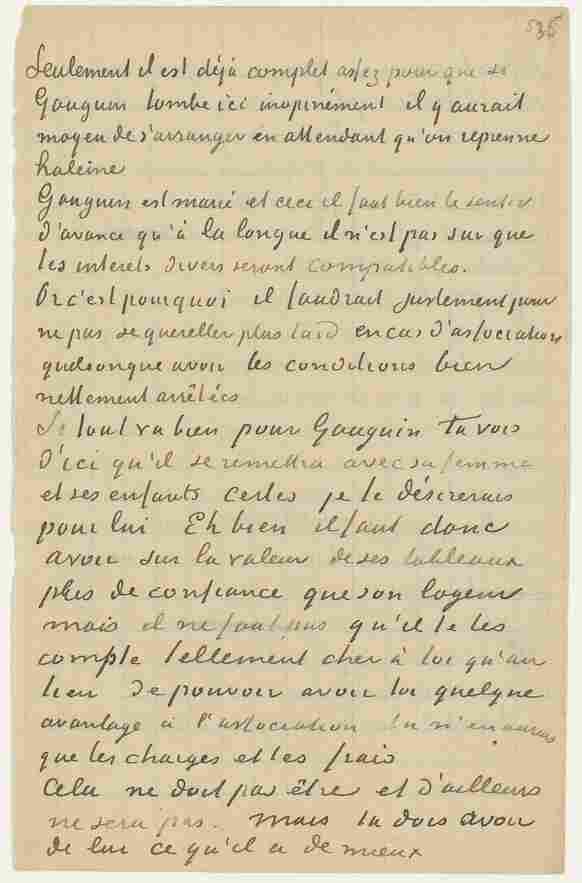 535
Seulement il est déjà complet assez pour que si
Gauguin tombe ici inopinément il y aurait
moyen de s'arranger en attendant qu'on reprenne
haleine
Gauguin est marié et ceci il faut bien le sentir
d'avance qu'à la longue il n'est pas sur que
les interets divers seront compatibles.
Or c'est pourquoi il faudrait justement pour
ne pas se quereller plus tard en cas d'association
quelconque avoir les conditions bien
nettement arrêtées
Si tout va bien pour Gauguin tu vois
d'ici qu'il se remettra avec sa femme
et ses enfants Certes je le désirerais
pour lui Eh bien il faut donc
avoir sur la valeur de ses tableaux
plus de confiance que son logeur
mais il ne faut pas qu'il te les
compte tellement cher à toi qu'au
lieu de pouvoir avoir toi quelque
avantage à l'association tu n'en aurais
que les charges et les frais
Cela ne doit pas être et d'ailleurs
ne sera pas. mais tu dois avoir
de lui ce qu'il a de mieux